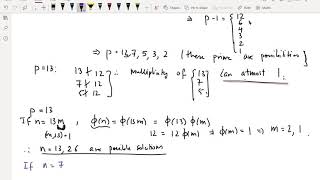 ⇒ p-1 = { 12
6
4
3
2
1
⇒ p = 13, 7, 5, 3, 2 (these prime are possibilities)
p=13: 13 ∤ 12
7 ∤ 12
5 ∤ 12
∴ multiplicity of { 13
7
5 . can atmost 1.
p = 13
If n = 13m, φ(n) = φ(13m) = φ(13) φ(m)
(m,13)=1 12 = 12 φ(m) ⇒ φ(m) = 1 ⇒ m = 2, 1.
∴ n = 13, 26 are possible solutions
If n = 7